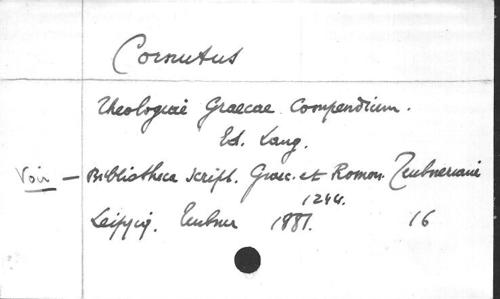 Cornutus
Theologiae Graecae Compendium.
Ed. Lang.
Voir — Bibliotheca script. Graec. et Roman. Teubneriana
1244.
Leipzig. Teubner 1881. 16